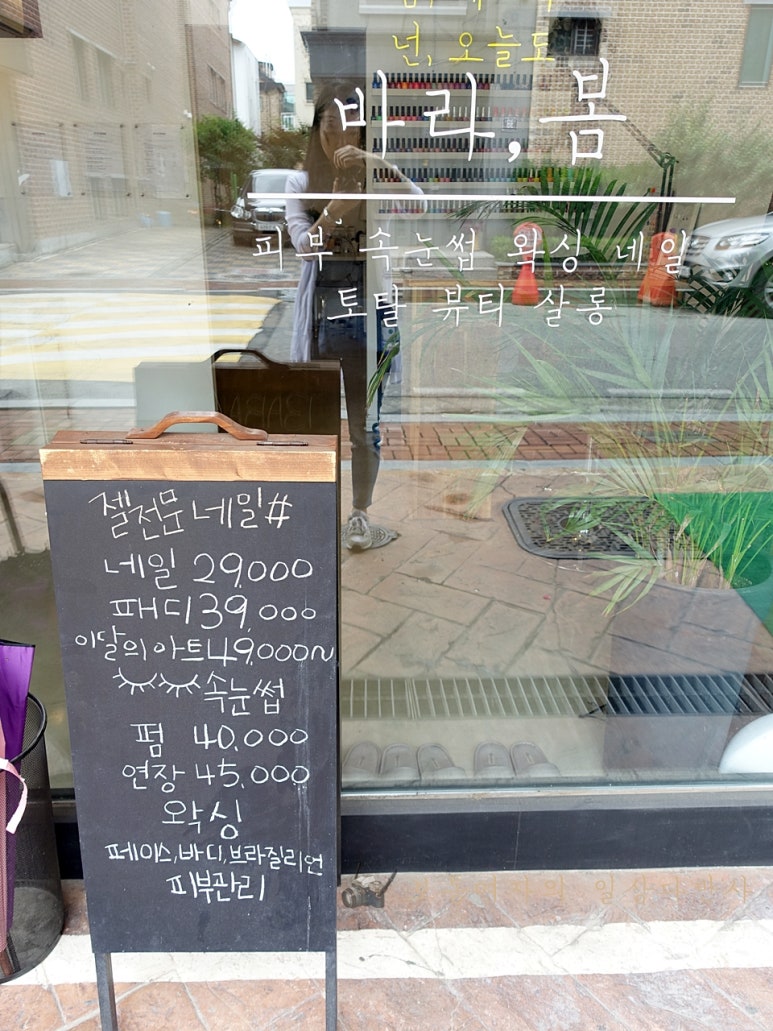 넌, 오늘도
바라, 봄
피부 속눈썹 왁싱 네일
토탈 뷰티 살롱
젤전문네일#
네일 29,000
패디 39,000
이달의아트 49,000~
속눈썹
펌 40,000
연장 45,000
왁싱
페이스, 바디, 브라질리언
피부관리